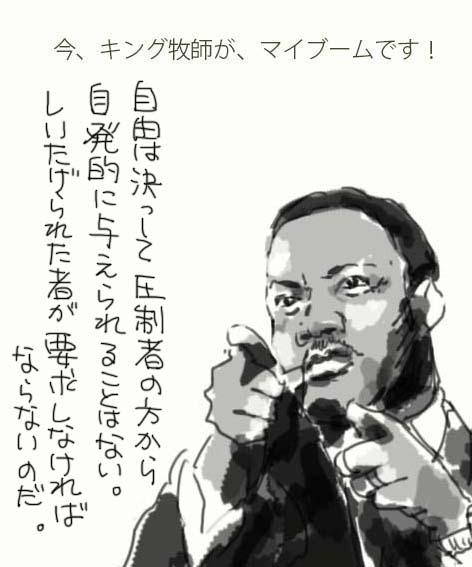 今、キング牧師が、マイブームです！
自由は決って圧制者の方から
自発的に与えられることはない。
しいたげられた者が要求しなければ
ならないのだ。